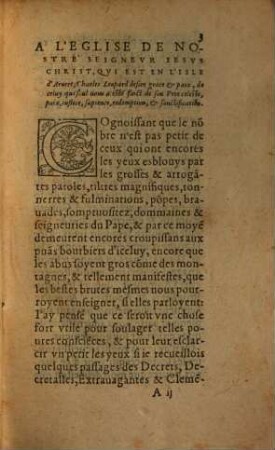 3
A L'EGLISE DE NO-
STRE SEIGNEVR IESVS
CHRIST, QVI EST EN L'ISLE
d'Aruert, Charles Leopard desire grace & paix, de
celuy qui seul nous a esté faict de son Pere celeste,
paix, iustice, sapience, redemption, & sanctification.
COgnoissant que le nõ
bre n'est pas petit de
ceux qui ont encores
les yeux esblouys par
les grosses & arrogã-
tes paroles, tiltres magnifiques, ton-
nerres & fulminations, põpes, bra-
uades, somptuositez, dommaines &
seigneuries du Pape, & par ce moyẽ
demeurent encores croupissans aux
puãs bourbiers d'iceluy, encore que
les abus soyent gros cõme des mon-
tagnes, & tellement manifestes, que
les bestes brutes mesmes nous pour-
royent enseigner, si elles parloyent:
I'ay pensé que ce seroit vne chose
fort vtile pour soulager telles po-
ures consciẽces, & pour leur esclar-
cir vn petit les yeux si ie recueillois
quelques passages des Decrets, De-
cretalles, Extrauagantes & Clemẽ-
A ij